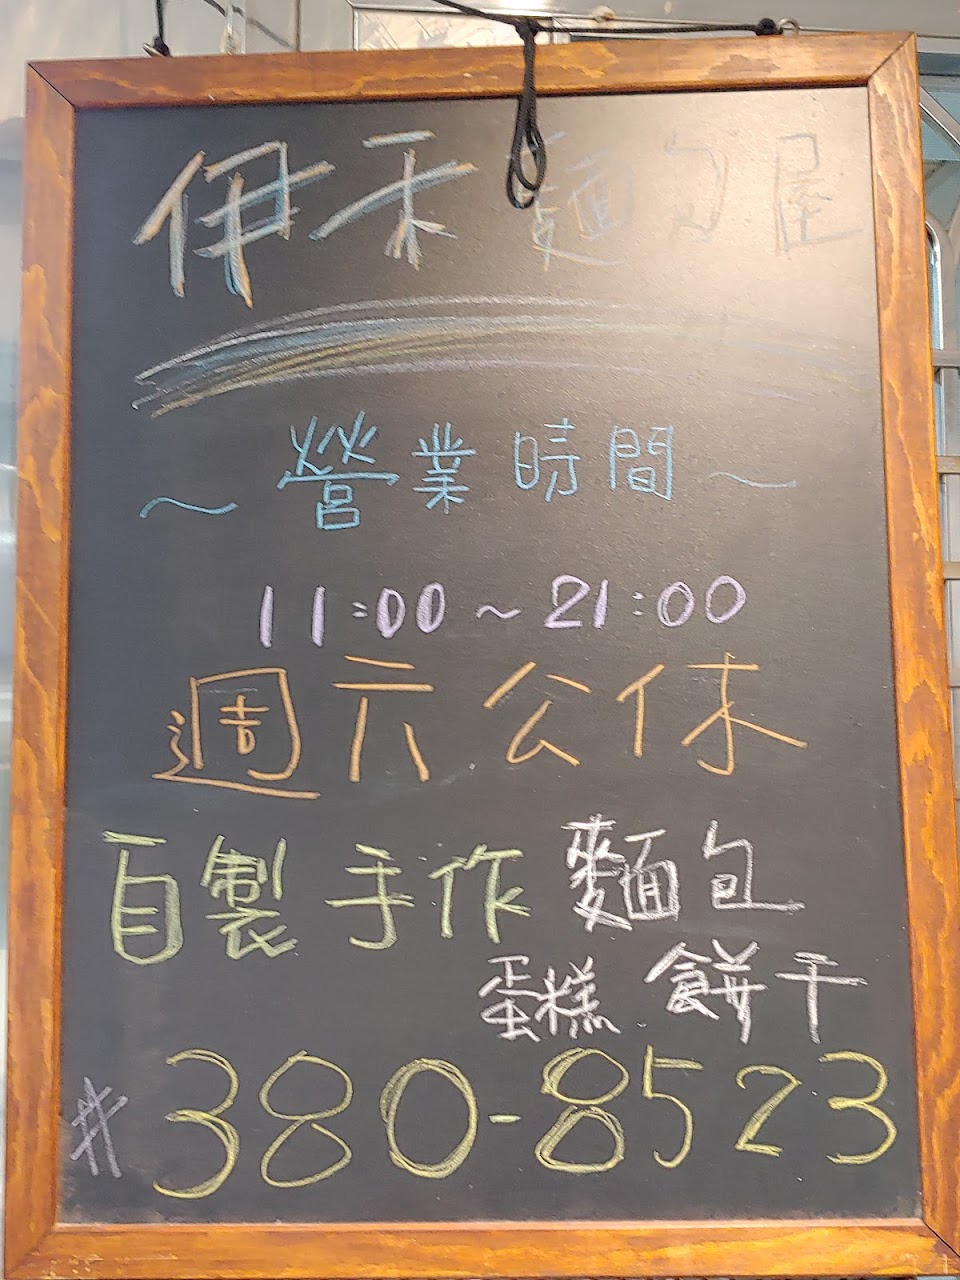 伊禾麵包屋
~營業時間~
11:00~21:00
週六公休
自製手作麵包
蛋糕.餅干
#380-8523